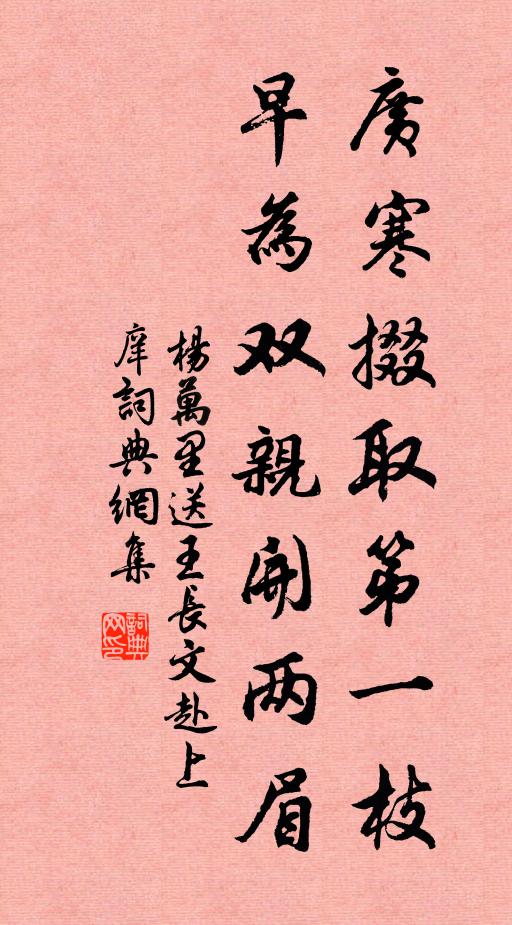 廣寒掇取第一枝
早為双親開两眉
楊萬里送王長文赴上
庠詞典網集
詞典
网印